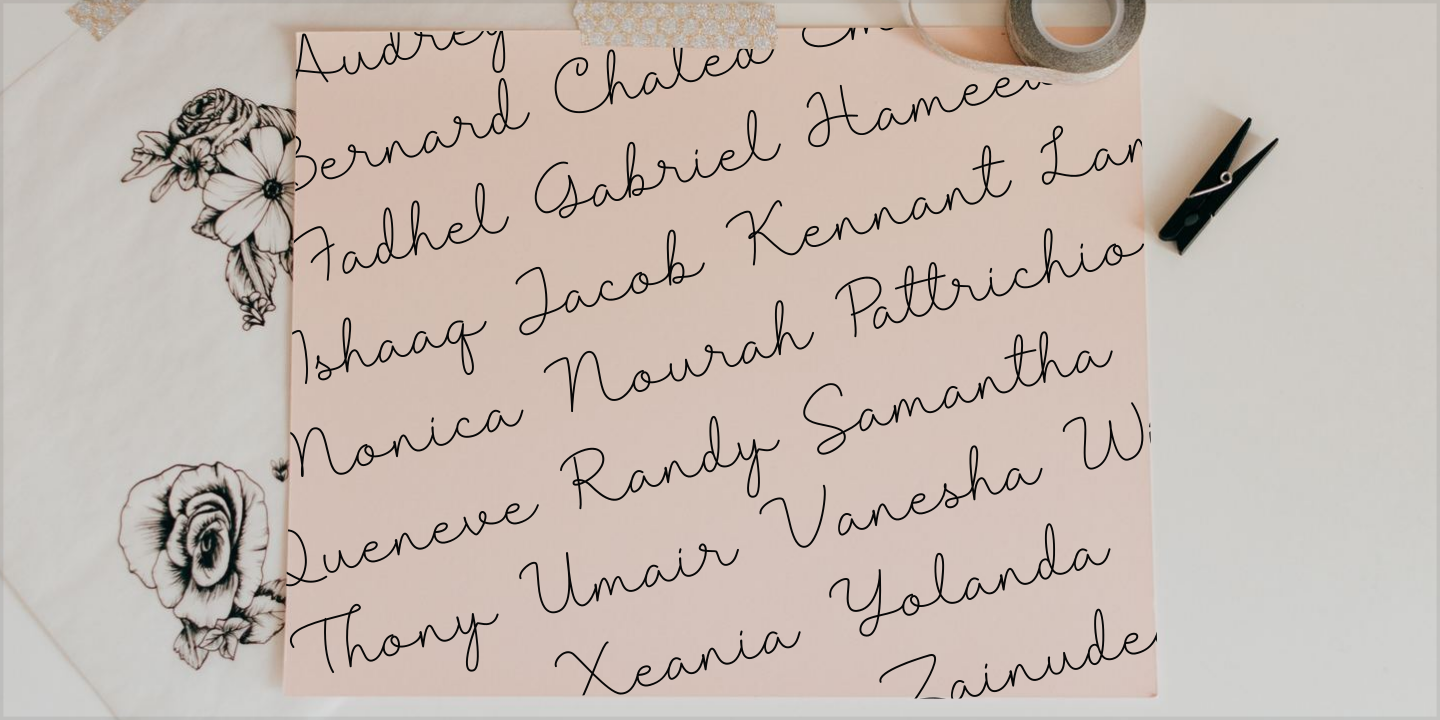 Audrey
Bernard Chaled Em
Fadhel Gabriel Hameed
Ishaaq Jacob Kennant Lan
Monica Nourah Pattrichio
Queneve Randy Samantha
Thony Umair Vanesha Wi
Xeania Yolanda
Zainude